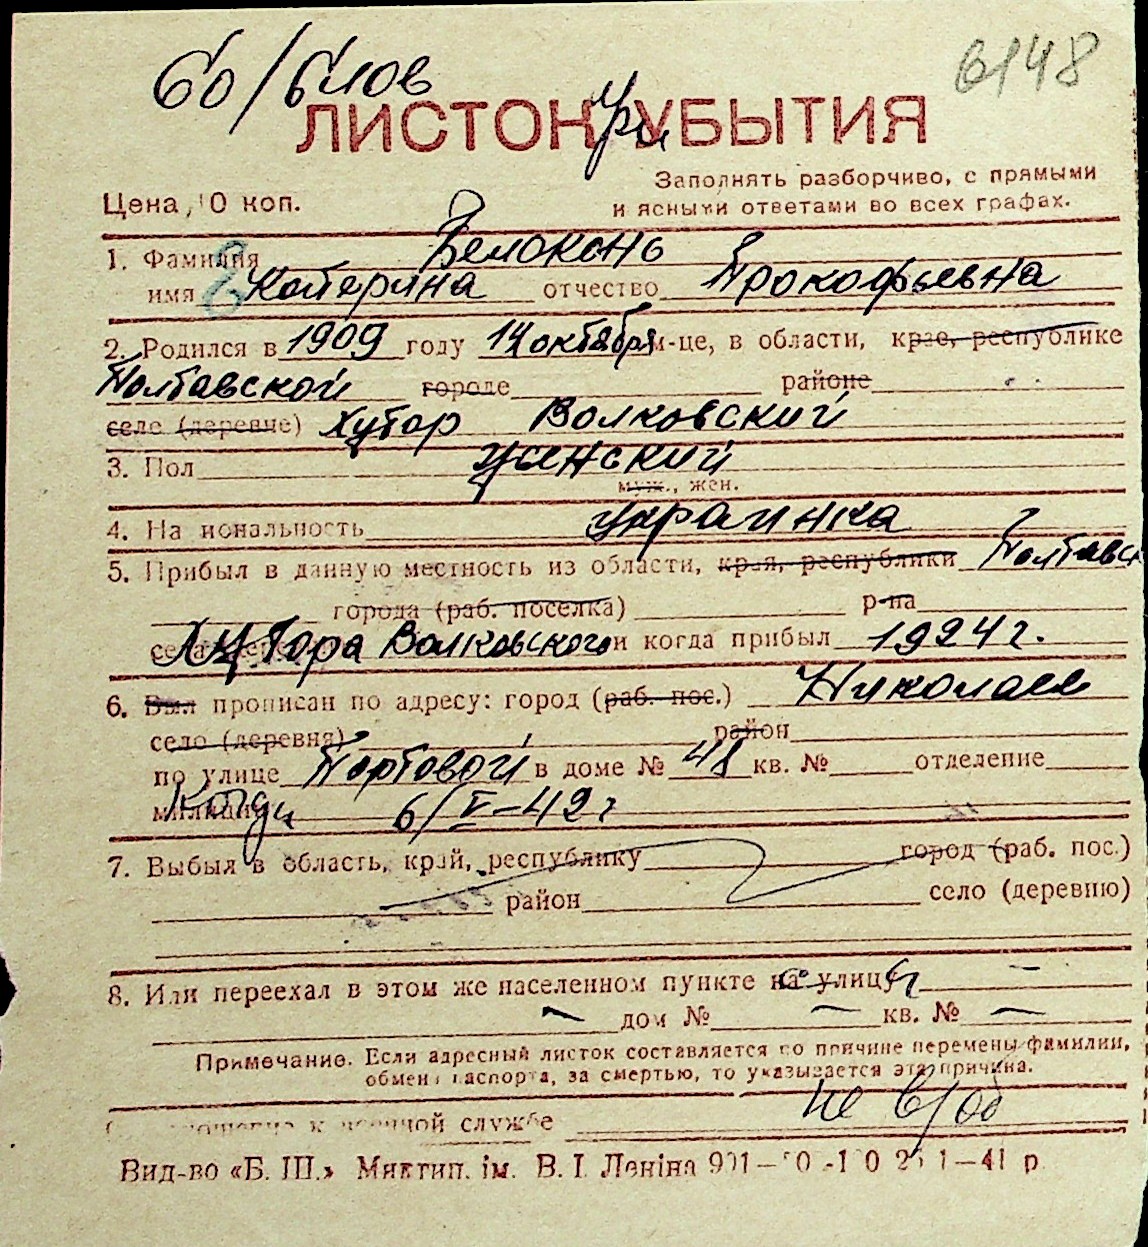 6148
ЛИСТОК УБЫТИЯ
Заполнять разборчиво, с прямыми
Цена 10 коп. и ясными ответами во всех графах.
1. Фамилия Белоконь
имя Катерина отчество Прокофьевна
2. Родился в 1909 году 14 октября м-це, в области, крае, республике
Полтавской городе районе
село (деревне) Хутор Волковский
3. Пол женский
муж., жен.
4. Национальность украинка
5. Прибыл в данную местность из области, края, республики Полтавск
города (раб. поселка) р-на
Хутора Волковского и когда прибыл 1924 г.
6. Был прописан по адресу: город (раб. пос.) Николаев
село (деревня) район
по улице Портовой в доме № 48 кв. № отделение
милиции Когда 6/V-42 г
7. Выбыл в область, край, республику город (раб. пос.)
район село (деревню)
8. Или переехал в этом же населенном пункте на улицу
дом № кв. №
Примечание. Если адресный листок составляется по причине перемены фамилии,
обмена паспорта, за смертью, то указывается эта причина.
к военной службе не в/об
Вид-во «Б. Ш.» Миктип. ім. В. І. Леніна